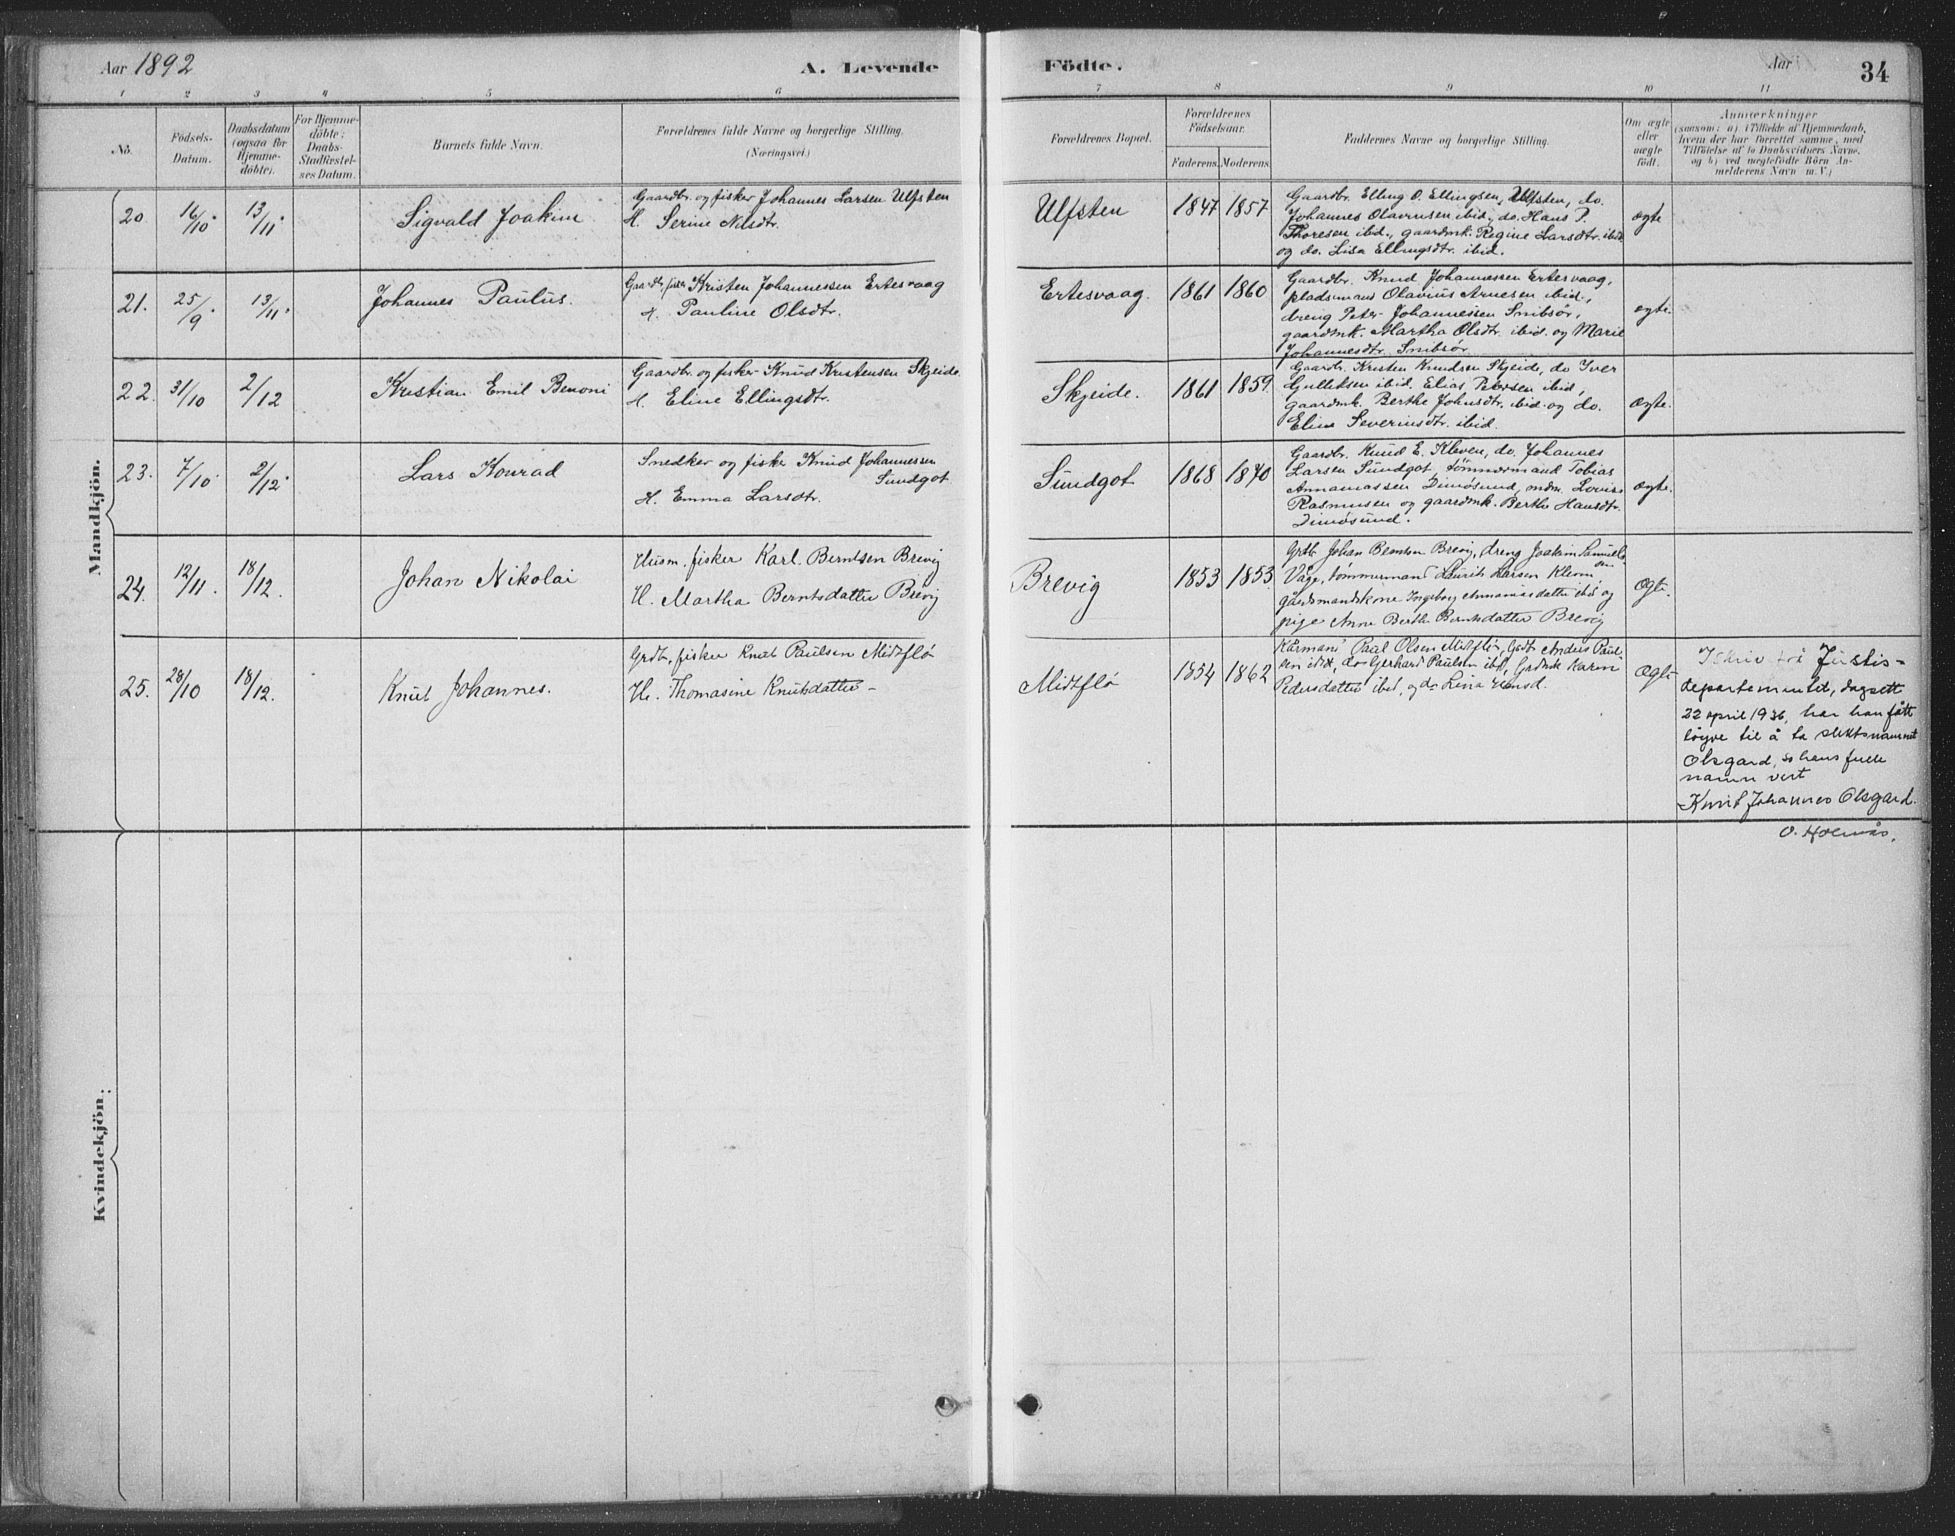 Aar 1892
A. Levende
Födte.
Aar
34
1 2 3 4 5 6 7 8 9 10 11
No.
Födsels-
Datum.
Daabsdatum
(ogsaa for
Hjemme-
döbte).
For Hjemme-
döbte:
Daabs-
Stadfæstel-
ses Datum.
Barnets fulde Navn.
Forældrenes fulde Navne og borgerlige Stilling.
(Næringsvei.)
Forældrenes Bopæl.
Forældrenes
Födselsaar.
Faderens. Moderens.
Faddernes Navne og borgerlige Stilling.
Om ægte
eller
uægte
födt.
Anmærkninger
(saasom: a) i Tilfælde af Hjemmedaab,
hvem der har forrettet samme, med
Tilföielse af to Daabsvidners Navne,
og b) ved uægtefödte Börn An-
melderens Navn m.V.)
Mandkjön.
20. 16/10. 13/11. Sigvald Joakim
Gaardbr. og fisker Johannes Larsen Ulfsten
H. Serine Nilsdtr.
Ulfsten 1847 1857
Gaardbr. Elling O. Ellingsen, Ulfsten, do.
Johannes Olavussen ibid, do. Hans P.
Thoresen ibid., gaardmk. Regine Larsdtr. ibid
og do. Lisa Ellingsdtr. ibid.
ægte
21. 25/9. 13/11. Johannes Paulus.
Gaardbr, fisker Kristen Johannessen Ertesvaag
H. Pauline Olsdtr.
Ertesvaag. 1861 1860
Gaardbr. Knud Johannessen Ertesvaag,
pladsmand Olavius Arnesen ibid.,
dreng Peter Johannessen Snibsör,
gaardmk. Martha Olsdtr. ibid. og Marie
Johannesdtr. Snibsör
ægte.
22. 31/10 2/12 Kristian Emil Benoni
Gaardbr. og fisker Knud Kristensen Skjeide.
H. Eline Ellingsdtr.
Skjeide. 1861 1859.
Gaardbr. Kristen Knudsen Skjeide, do Iver
ibid. Elias Petersen ibid,
gaardmk. Berthe Johnsdtr. ibid. og do.
Eline Severinsdtr. ibid.
Ægte.
23. 7/10. 2/12. Lars Konrad
Snedker og fisker Knud Johannessen
Sundgot
H. Emma Larsdtr.
Sundgot 1868 1870
Gaardbr. Knud E. Kleven, do. Johannes
Larsen Sundgot, tömmermand Tobias
Annanassen Dimösund,
Rasmusen og gaardmk. Berthe Hansdtr.
Dimösund.
ægte.
24. 12/11. 18/12. Johan Nikolai
Husm, fisker Karl Berntsen Brevig
H. Martha Berntsdatter Brevig
Brevig 1853 1853.
Grdb. Johan Berntsen Brevig, dreng Joakim Samuel-
sen
Våge, tömmermand Laurits Larsen Kleven,
gårdmandskone Ingeborg Annaniasdatter ibid og
pige Anne Berthe Berntsdatter Brevig
Ægte.
25. 28/10 18/12. Knut Johannes.
Grdb., fisker Knut Paulsen Midtflø
H. Thomasine Knutsdatter –
Midtflø 1854 1862
Kårmand Paal Olsen Midtflø, Grdb. Anders Paul-
sen ibid, do Gerhard Paulsen ibid, Grdmk Karen
Pedersdatter ibid, og do Lina
Ægte
I skriv frå Justis-
departementet, dagsett
22 april 1936, har han fått
løyve til å ta slektsnamnet
Olsgard, so hans fulle
namn vert
Knut Johannes Olsgard.
O. Holmås.
Kvindekjön.